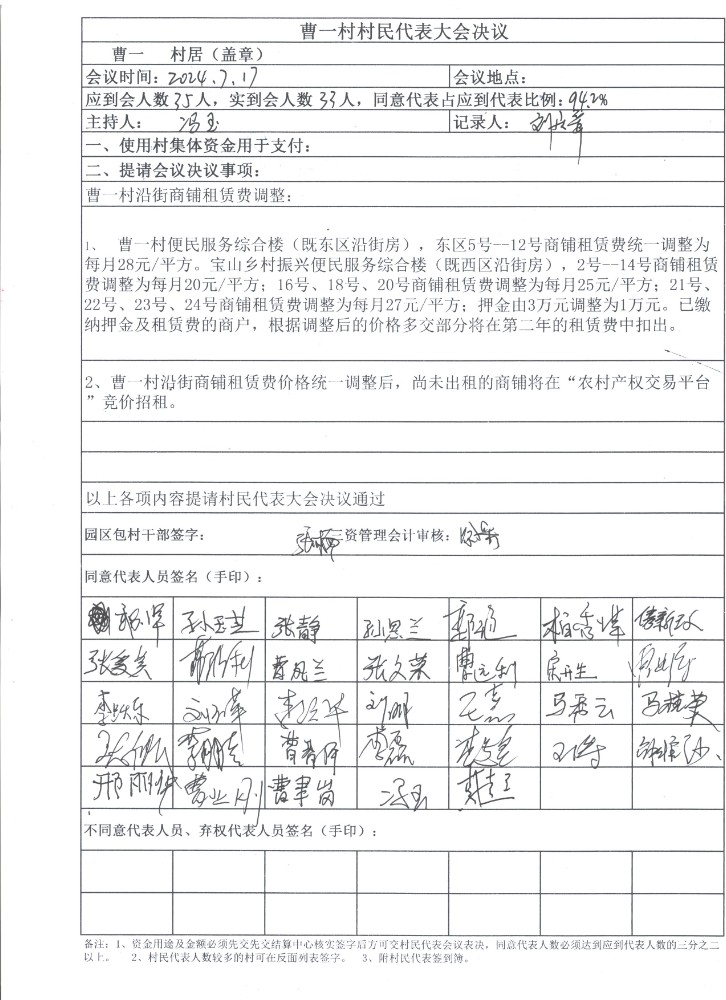 曹一村村民代表大会决议
曹一 村居（盖章）
会议时间：2024.7.17 会议地点：
应到会人数35人，实到会人数33人，同意代表占应到代表比例：94.2%
主持人： 冯玉 记录人：
一、使用村集体资金用于支付：
二、提请会议决议事项：
曹一村沿街商铺租赁费调整：
1、 曹一村便民服务综合楼（既东区沿街房），东区5号--12号商铺租赁费统一调整为
每月28元/平方。宝山乡村振兴便民服务综合楼（既西区沿街房），2号--14号商铺租赁
费调整为每月20元/平方；16号、18号、20号商铺租赁费调整为每月25元/平方；21号、
22号、23号、24号商铺租赁费调整为每月27元/平方；押金由3万元调整为1万元。已缴
纳押金及租赁费的商户，根据调整后的价格多交部分将在第二年的租赁费中扣出。
2、曹一村沿街商铺租赁费价格统一调整后，尚未出租的商铺将在“农村产权交易平台
”竞价招租。
以上各项内容提请村民代表大会决议通过
园区包村干部签字： 三资管理会计审核：
同意代表人员签名（手印）：
孙玉芝 张静 孙思兰
张爱美 曹凡兰 张文荣 曹远利 宋升生
刘明 马秀云 马桂英
李磊
邢雨华 曹业刚 曹聿岗 冯玉
不同意代表人员、弃权代表人员签名（手印）：
备注：1、资金用途及金额必须先交先交结算中心核实签字后方可交村民代表会议表决，同意代表人数必须达到应到代表人数的三分之二
以上。 2、村民代表人数较多的村可在反面列表签字。 3、附村民代表签到簿。